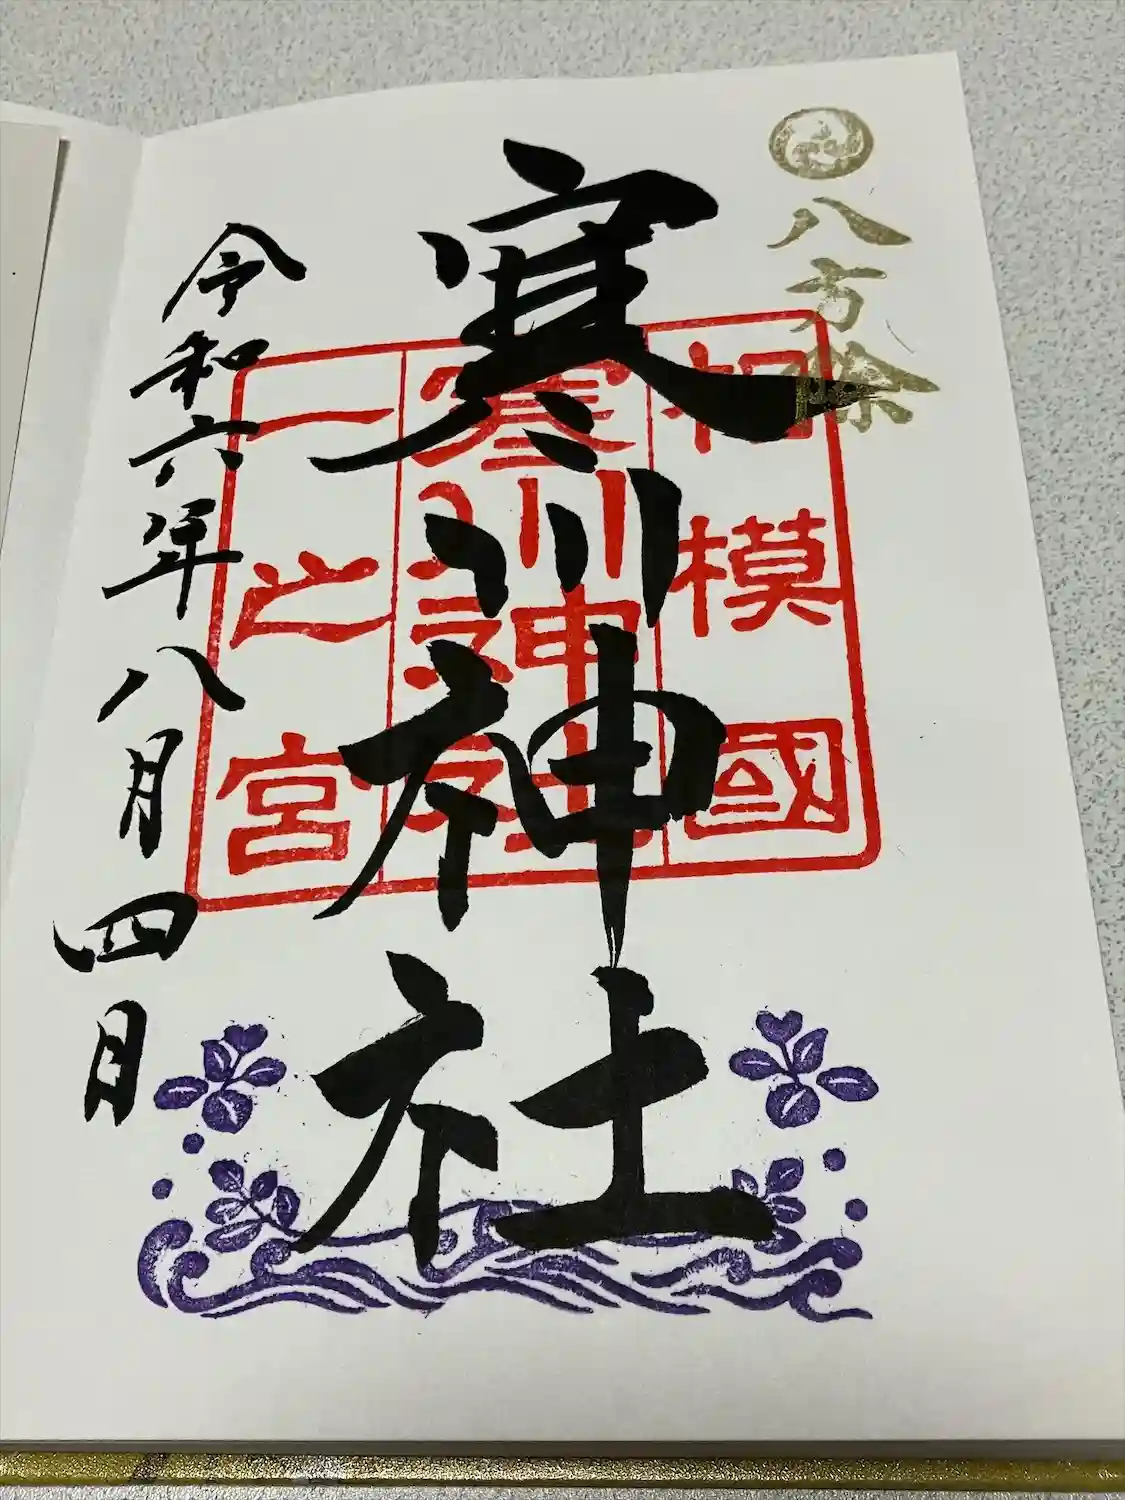 八方除
寒川神社
相模國
寒川神社
一之宮
令和六年八月四日